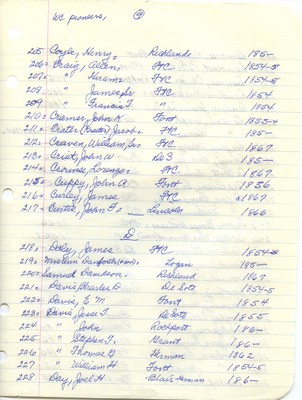 WC pioneers,
205. Coyle, Henry, Richlands 185-
206. Craig, Allen, FtC 1854-5
207. " Hiram FtC 1854-5
208. " James, Sr FtC 1854
209 " Francis T. " 1854
210. Cramer, John K Font 1853-4
211. Crater (Krater) Jacob. FtC 185-
212. Craven, William, Sr. FtC 1867
213. Crist, John W DeS 185-
214. Lorenzo FtC 1867
215. Cuppy, John A. Font 1856
216. Curley, James FtC 1867
217. John F. Lincoln 1866
D
218. Daley, James FtC 1854-5
219. Danforth Logan 185-
220. Samuel Davidson. Richland 1867
221. Davis, Charles D DeSoto 1854-5
222. Davis, E. M Font 1854
223. Davis, Jesse T. DeSoto 1855
224 " John Rockport 186-
225 " Stephen T. Grant 186-
226 " Thomas G Herman 1862
227 " William H Font 1854-5
228 Day, Joel H Blair-Herman 186-